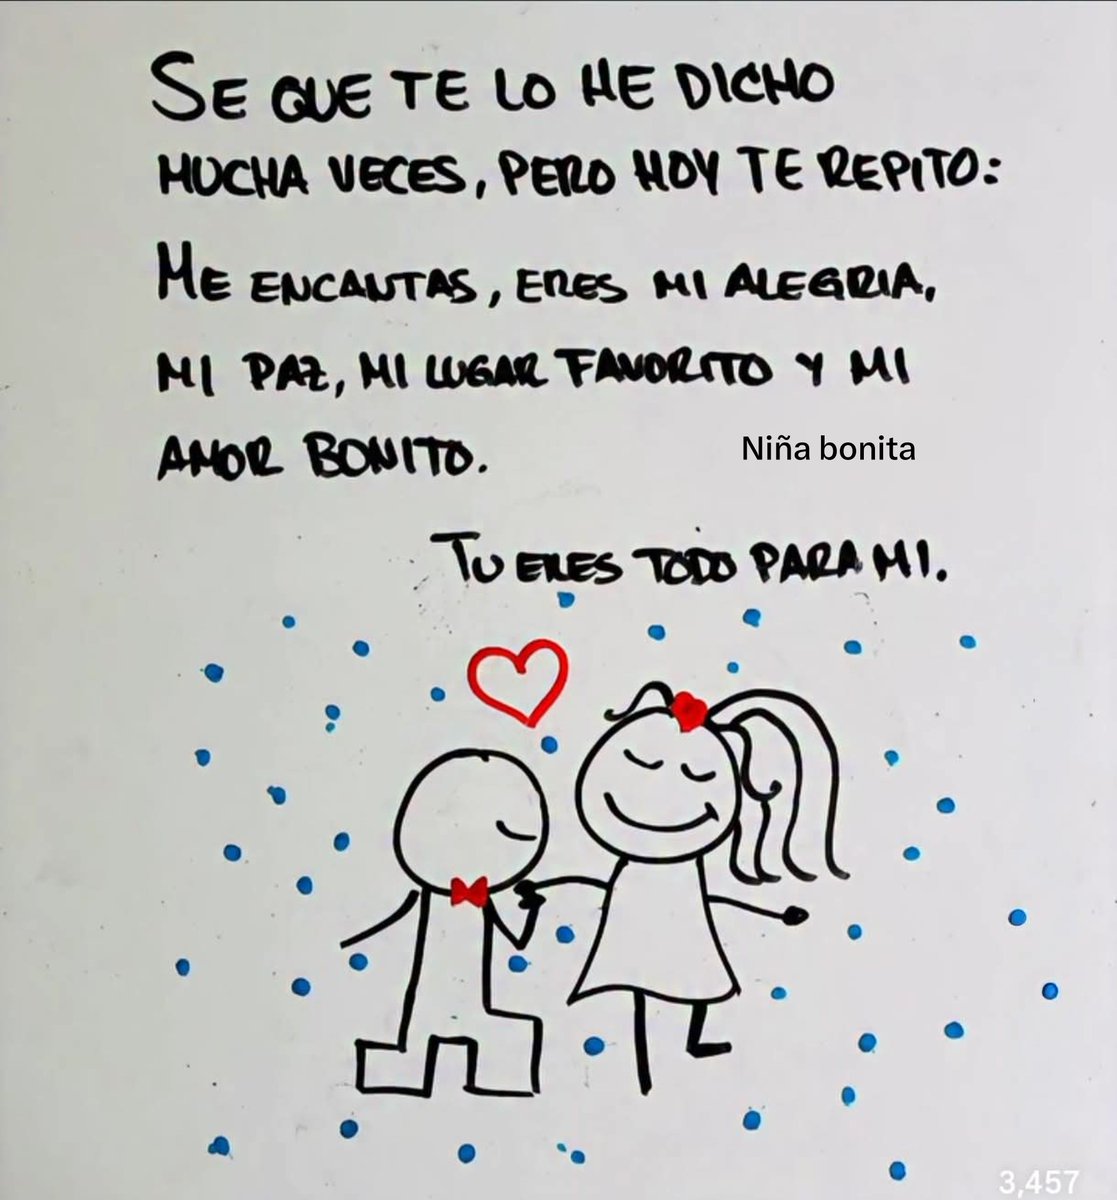 SE QUE TE LO HE DICHO
MUCHA VECES, PERO HOY TE REPITO:
ME ENCANTAS, ERES MI ALEGRIA,
MI PAZ, MI LUGAR FAVORITO Y MI
AMOR BONITO.
Niña bonita
TU ERES TODO PARA MI.
3,457